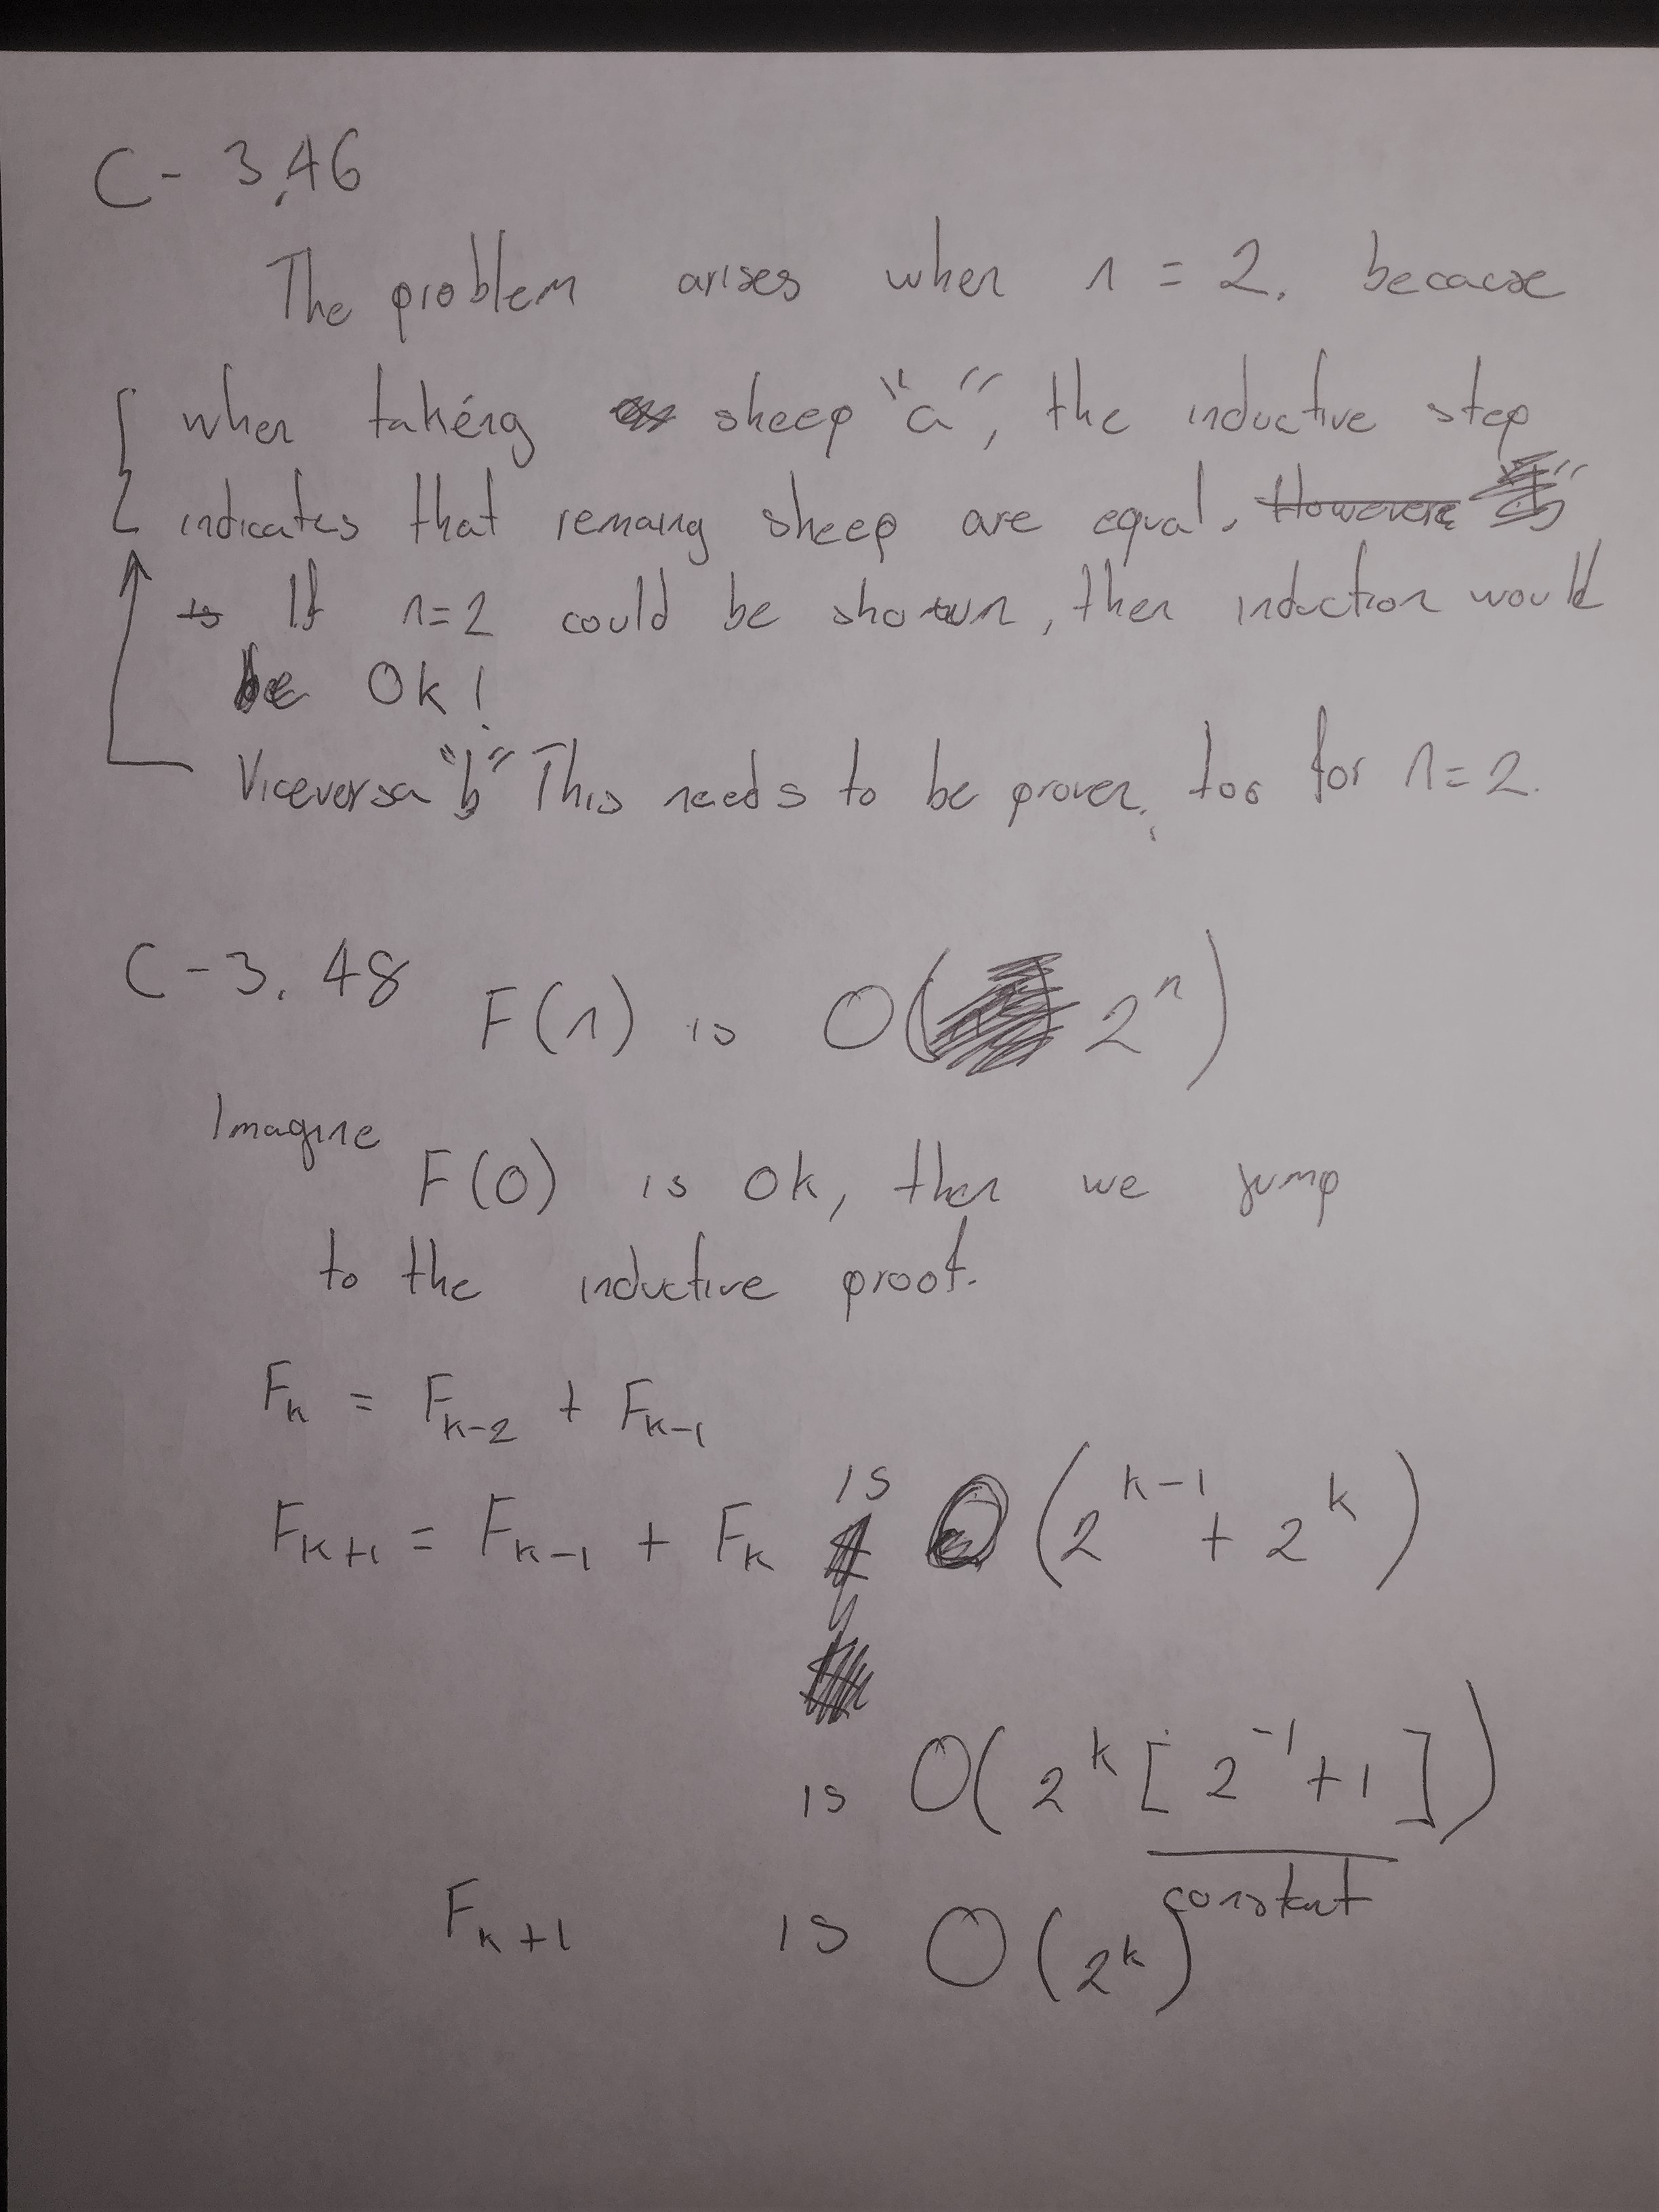 C - 3.46
The problem arises when n = 2. because
when taking sheep "a", the inductive step
indicates that remaing sheep are equal. However
to If n=2 could be shown, then induction would
be Ok!
Viceversa "b" This needs to be proven. too for n=2.
C - 3. 48 F(n) is O( 2^n )
Imagine
F(0) is ok, then we jump
to the inductive proof.
F_k = F_{k-2} + F_{k-1}
F_{k+1} = F_{k-1} + F_k is O(2^{k-1} + 2^k)
is O(2^k [2^{-1} + 1])
constant
F_{k+1} is O(2^k)